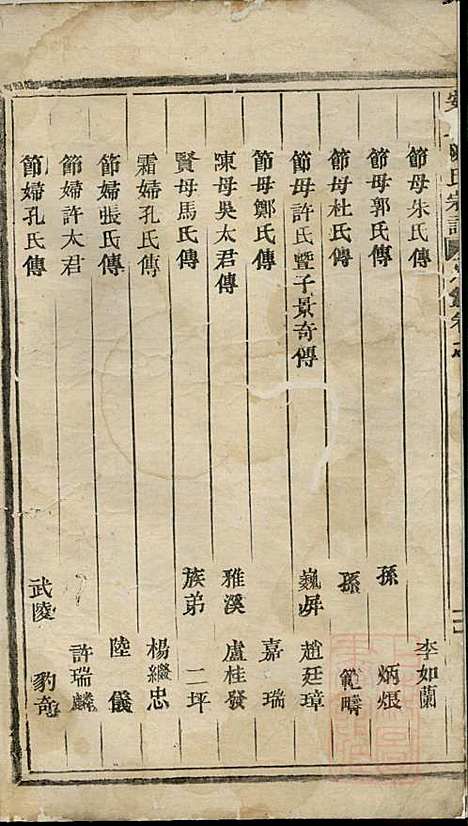 節母朱氏傳 李如蘭
節母郭氏傳 孫 炳烺
節母杜氏傳 孫 範疇
節母許氏暨子景奇傳 巍屏 趙廷璋
節母鄭氏傳 嘉瑞
陳母吳太君傳 雅溪 盧桂發
賢母馬氏傳 族弟 二坪
霜婦孔氏傳 楊繼忠
節婦張氏傳 陸儀
節婦許太君 許瑞麟
節婦孔氏傳 武陵 豹奇